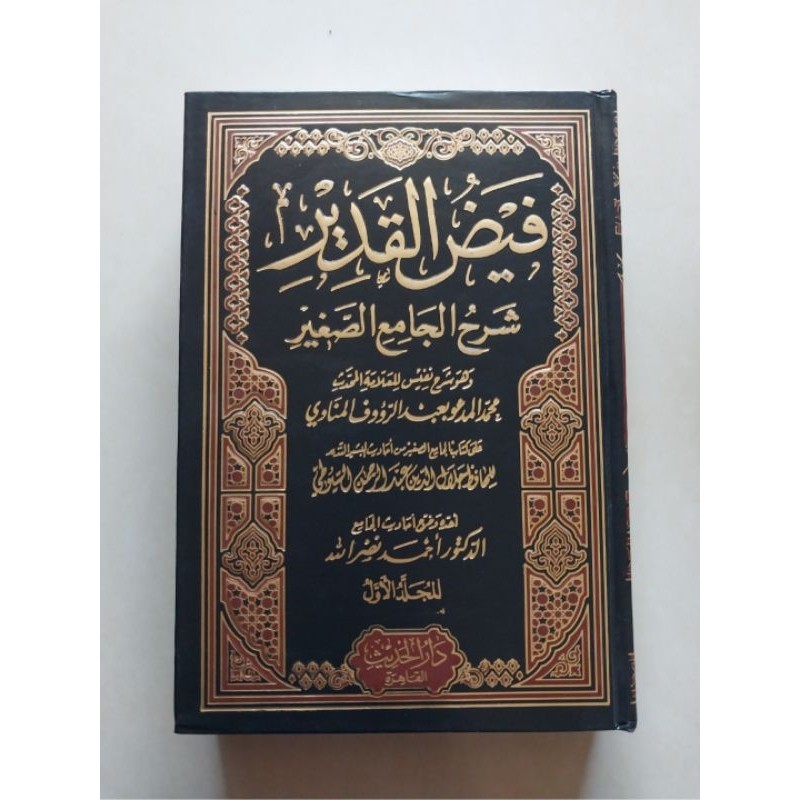 فَيضُ القَدِيرِ
شَرحُ الجَامِعِ الصَّغِيرِ
وهو شرح نفيس للعلامة المحدث
محمد المدعو بعبد الرؤوف المناوي
على كتاب الجامع الصغير من أحاديث البشير النذير
للحافظ جلال الدين عبد الرحمن السيوطي
أحاديث الجامع
الدكتور أحمد نصر الله
المُجلَّدُ الأَوَّلُ
دار الحديث
القاهرة